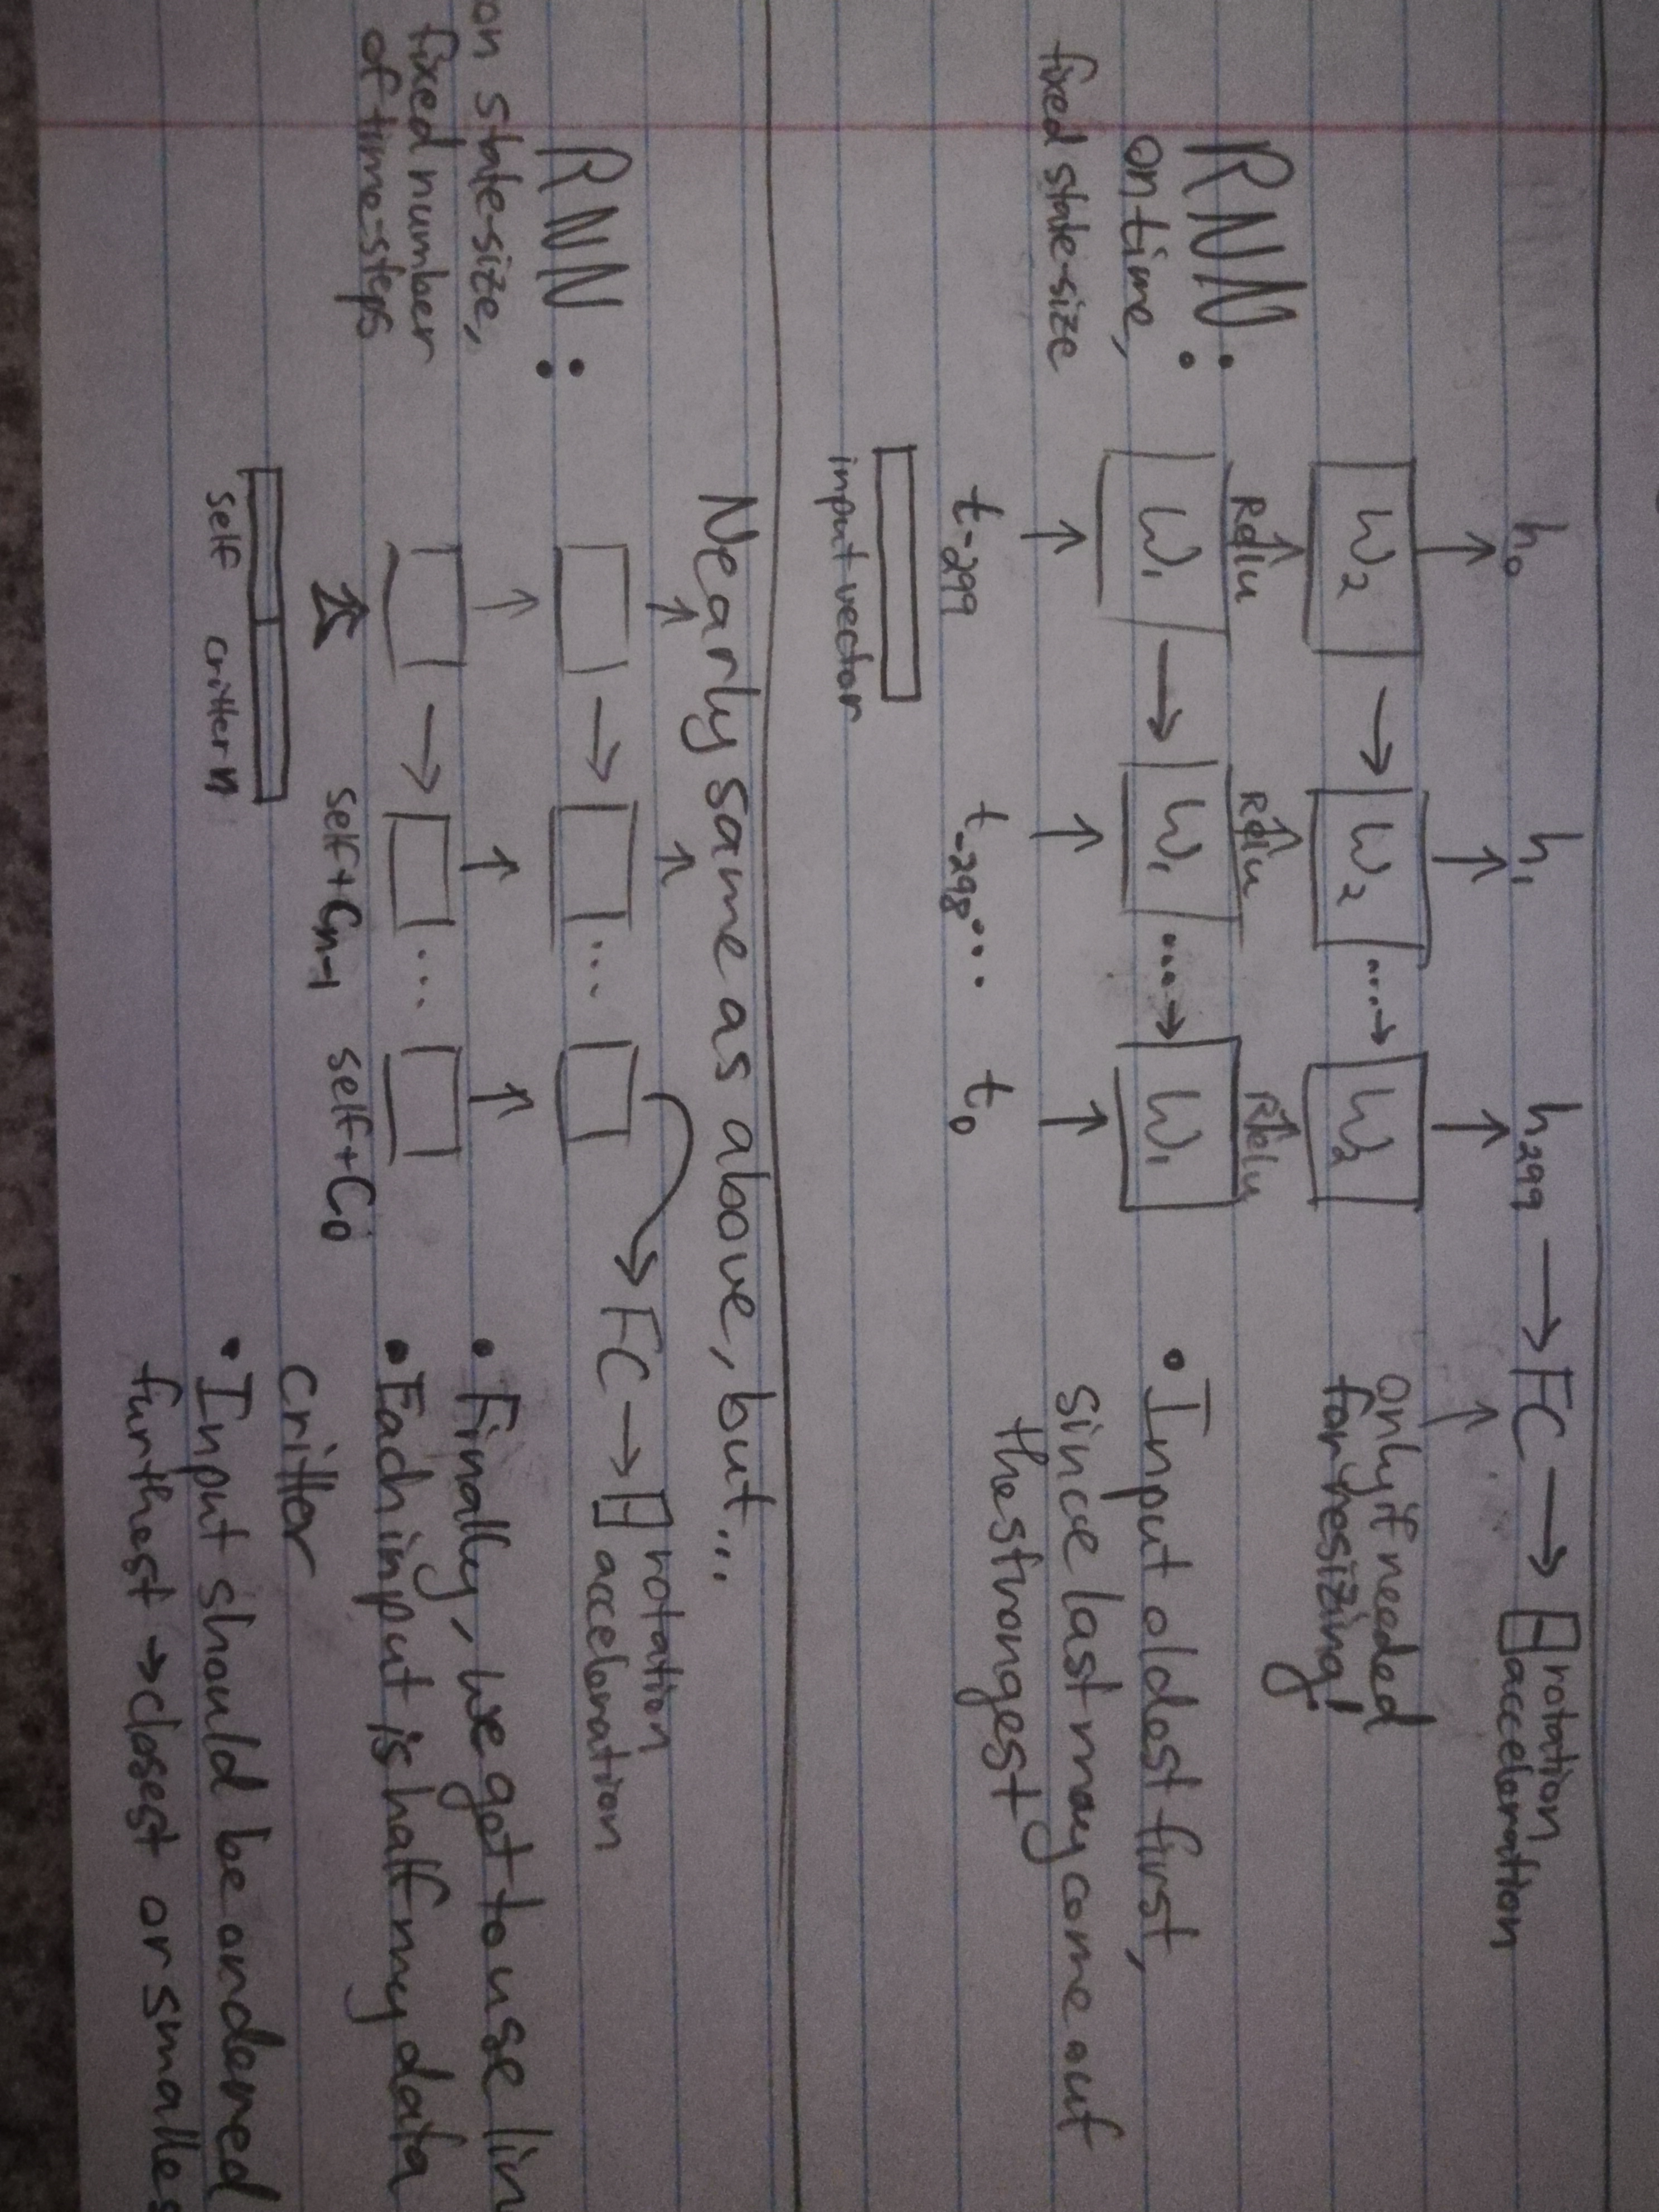 h₀ h₁ h₂₉₉ → FC → rotation
acceleration
W₂ → W₂ ...→ W₂
only if needed
for resizing!
Relu Relu Relu
RNN:
on time,
fixed state-size
W₁ → W₁ ...→ W₁
t-299 t-298 ... t₀
input vector
• Input oldest first,
since last may come out
the strongest
Nearly same as above, but...
RNN:
on state-size,
fixed number
of time-steps
→ ... FC → rotation
acceleration
→ ...
self+Cn-1 self+C₀
self critter n
• Finally, we got to use
• Each input is half my data
critter
• Input should be ordered
furthest → closest or